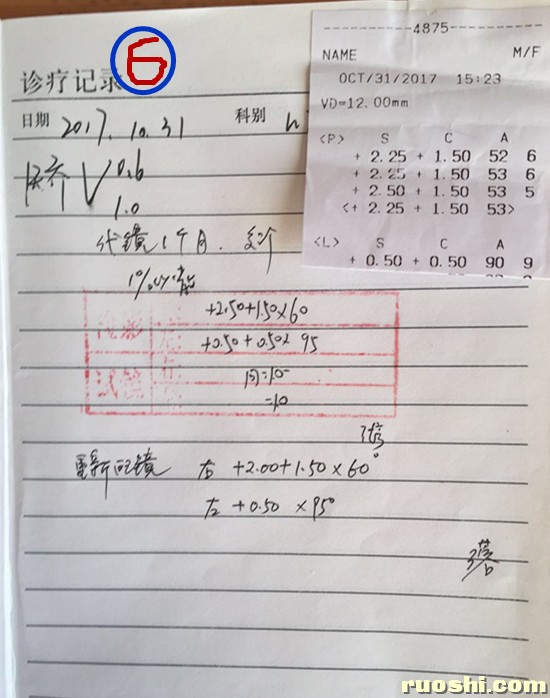 6
诊疗记录
日期 2017.10.31 科别
V 0.6
1.0
戴镜1个月.
1%
+2.50+1.50×60
+0.50+0.50× 95
试验
=10
重新配镜 右 +2.00+1.50×60°
左 +0.50 ×95°
4875
NAME M/F
OCT/31/2017 15:23
VD=12.00mm
<P> S C A
+ 2.25 + 1.50 52 6
+ 2.25 + 1.50 53 6
+ 2.50 + 1.50 53 5
<+ 2.25 + 1.50 53>
<L> S C A
+ 0.50 + 0.50 90 9
ruoshi.com